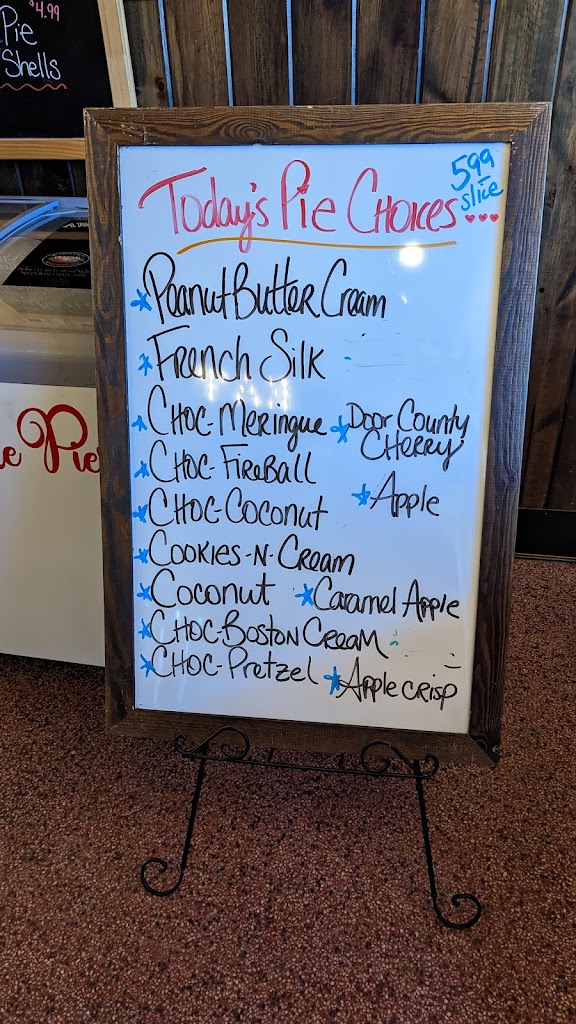 $4.99
Pie
Shells
Today's Pie Choices
5.99
slice
Peanut Butter Cream
French Silk
Choc-Meringue
Door County
Cherry
Choc-Fireball
Apple
Choc-Coconut
Cookies-N-Cream
Coconut
Caramel Apple
Choc-Boston Cream
Choc-Pretzel
Apple crisp
Pie